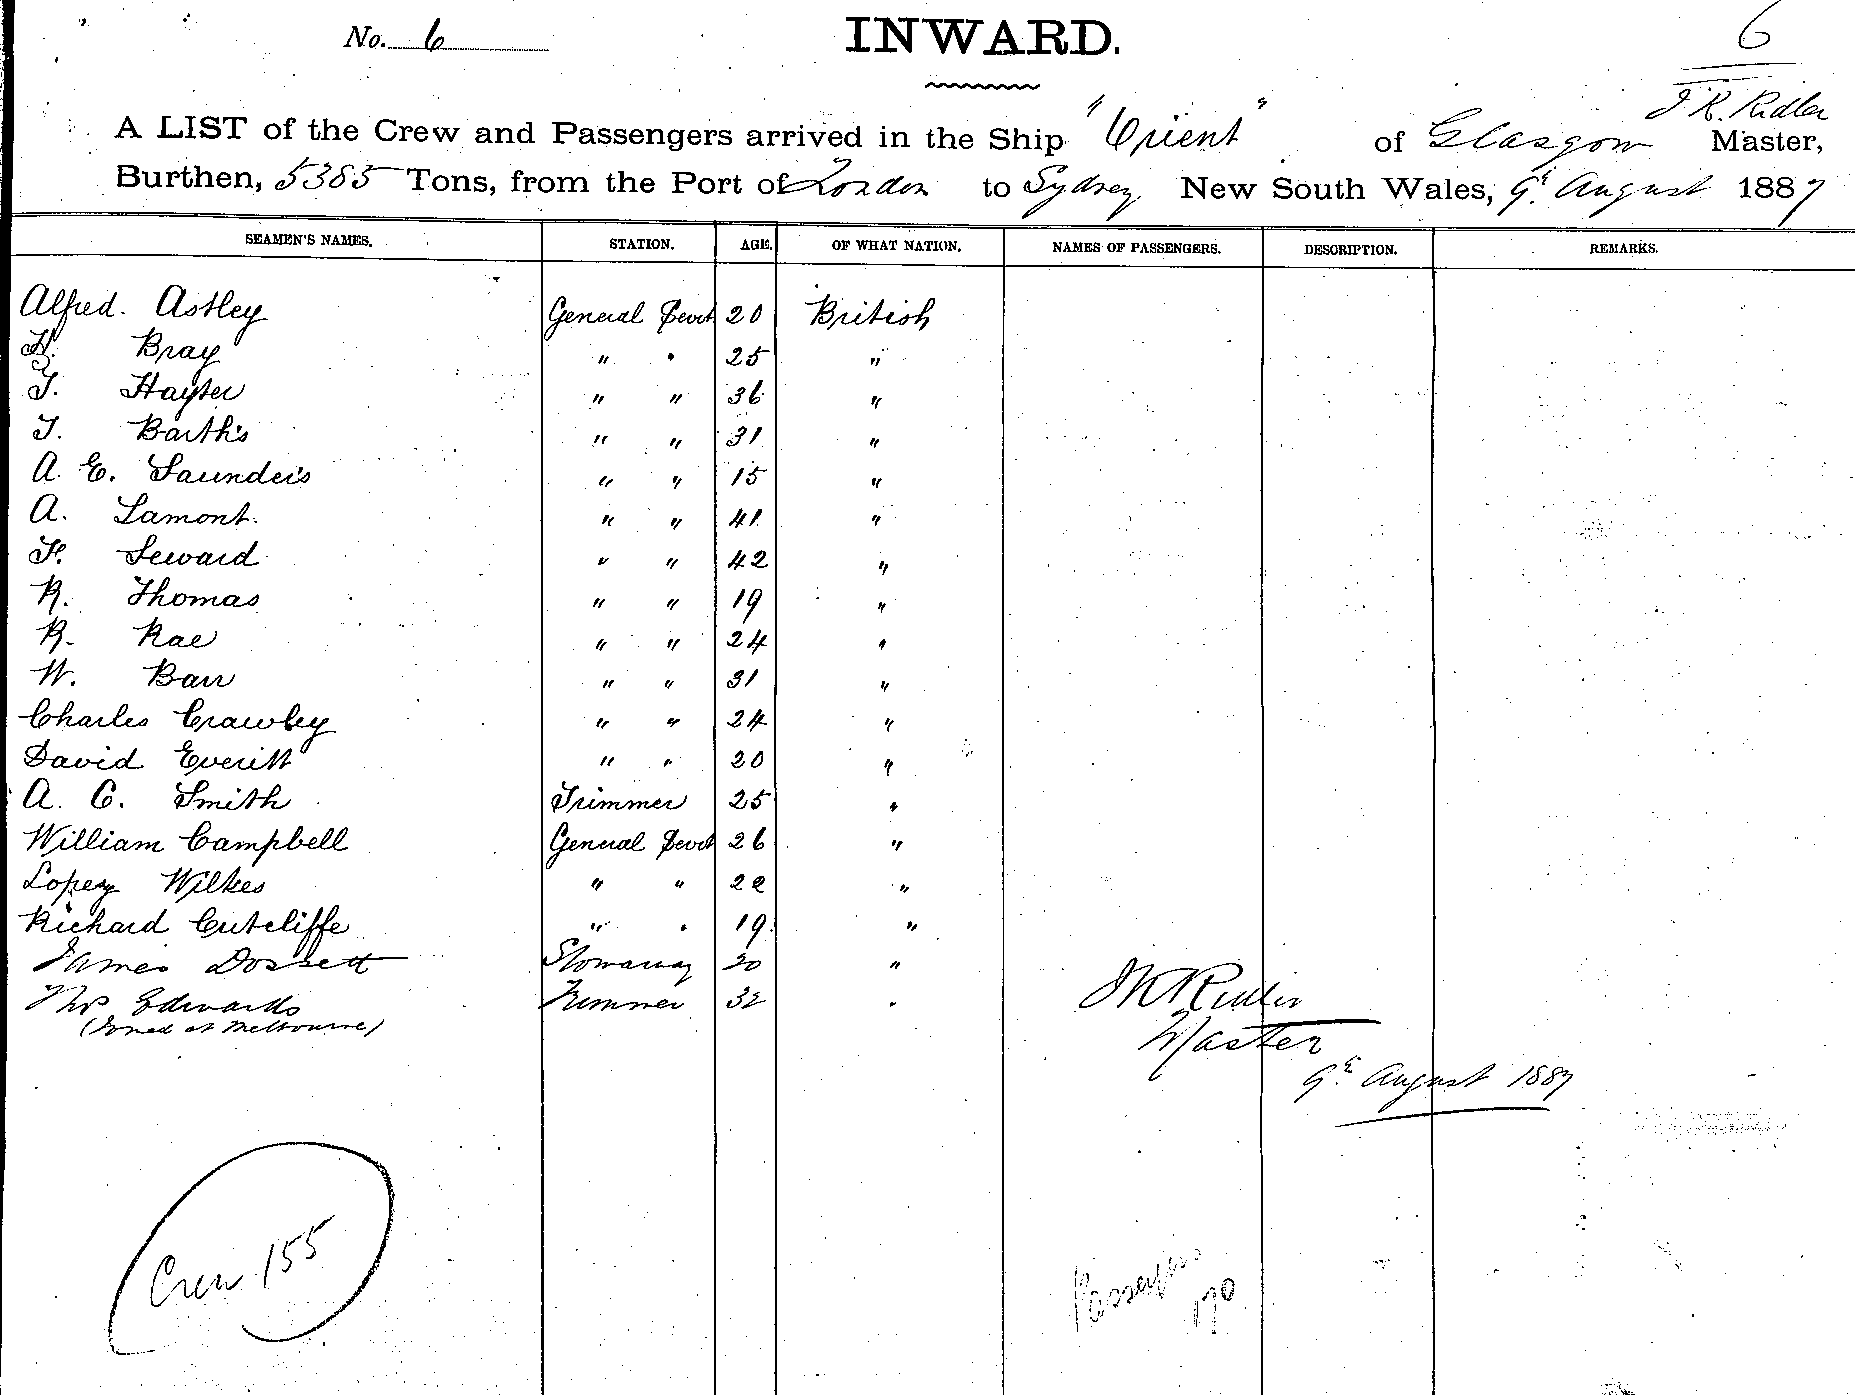 No. 6
INWARD.
6
J R. Ridler
A LIST of the Crew and Passengers arrived in the Ship "Orient" of Glasgow Master,
Burthen, 5385 Tons, from the Port of London to Sydney New South Wales, 9th August 1887
SEAMEN'S NAMES. STATION. AGE. OF WHAT NATION. NAMES OF PASSENGERS. DESCRIPTION. REMARKS.
Alfred. Astley General Servt 20 British
H. Bray " " 25 "
T. Hayter " " 36 "
T. Barth's " " 31 "
A. E. Saunders " " 15 "
A. Lamont. " " 41 "
F. Seward " " 42 "
R. Thomas " " 19 "
R. Rae " " 24 "
W. Barr " " 31 "
Charles Crawley " " 24 "
David Everitt " " 20 "
A. C. Smith Trimmer 25 "
William Campbell General Servt 26 "
Lopez Wilkes " " 22 "
Richard Cutcliffe " " 19 "
James Dossett Stowaway 20 "
Thos Edwards Trimmer 32 "
(Joined at Melbourne)
J R Ridler
Master
9th August 1887
Crew 155
Passengers
170